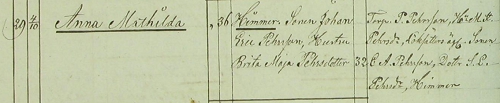 29 4/10 Anna Mathilda
36. Himmer. Sonen Johan
Eric Pehrsson, Hustru
Brita Maja Pehrsdotter 32.
Torp. P. Pehrsson, H:u
Pehrsdr, Sonen
E. A. Pehrsson, Dotr S. L.
Pehrsdr, Himmer